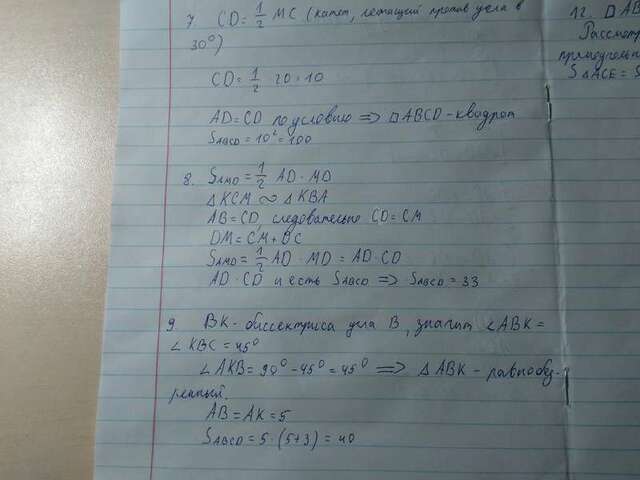 7 CD = 1/2 MC (катет, лежащий против угла в
30°)
CD = 1/2 · 20 = 10
AD = CD по условию => □ABCD - квадрат
SABCD = 10² = 100
8. SAMD = 1/2 AD · MD
△KCM ∾ △KBA
AB = CD, следовательно CD = CM
DM = CM + DC
SAMD = 1/2 AD · MD = AD · CD
AD · CD и есть SABCD => SABCD = 33
9. BK - биссектриса угла B, значит ∠ABK =
∠KBC = 45°
∠AKB = 90° - 45° = 45° => △ABK - равнобед-
ренный.
AB = AK = 5
SABCD = 5 · (5+3) = 40
12. □AB
Рассмотр
прямоугольн
S△ACE = S